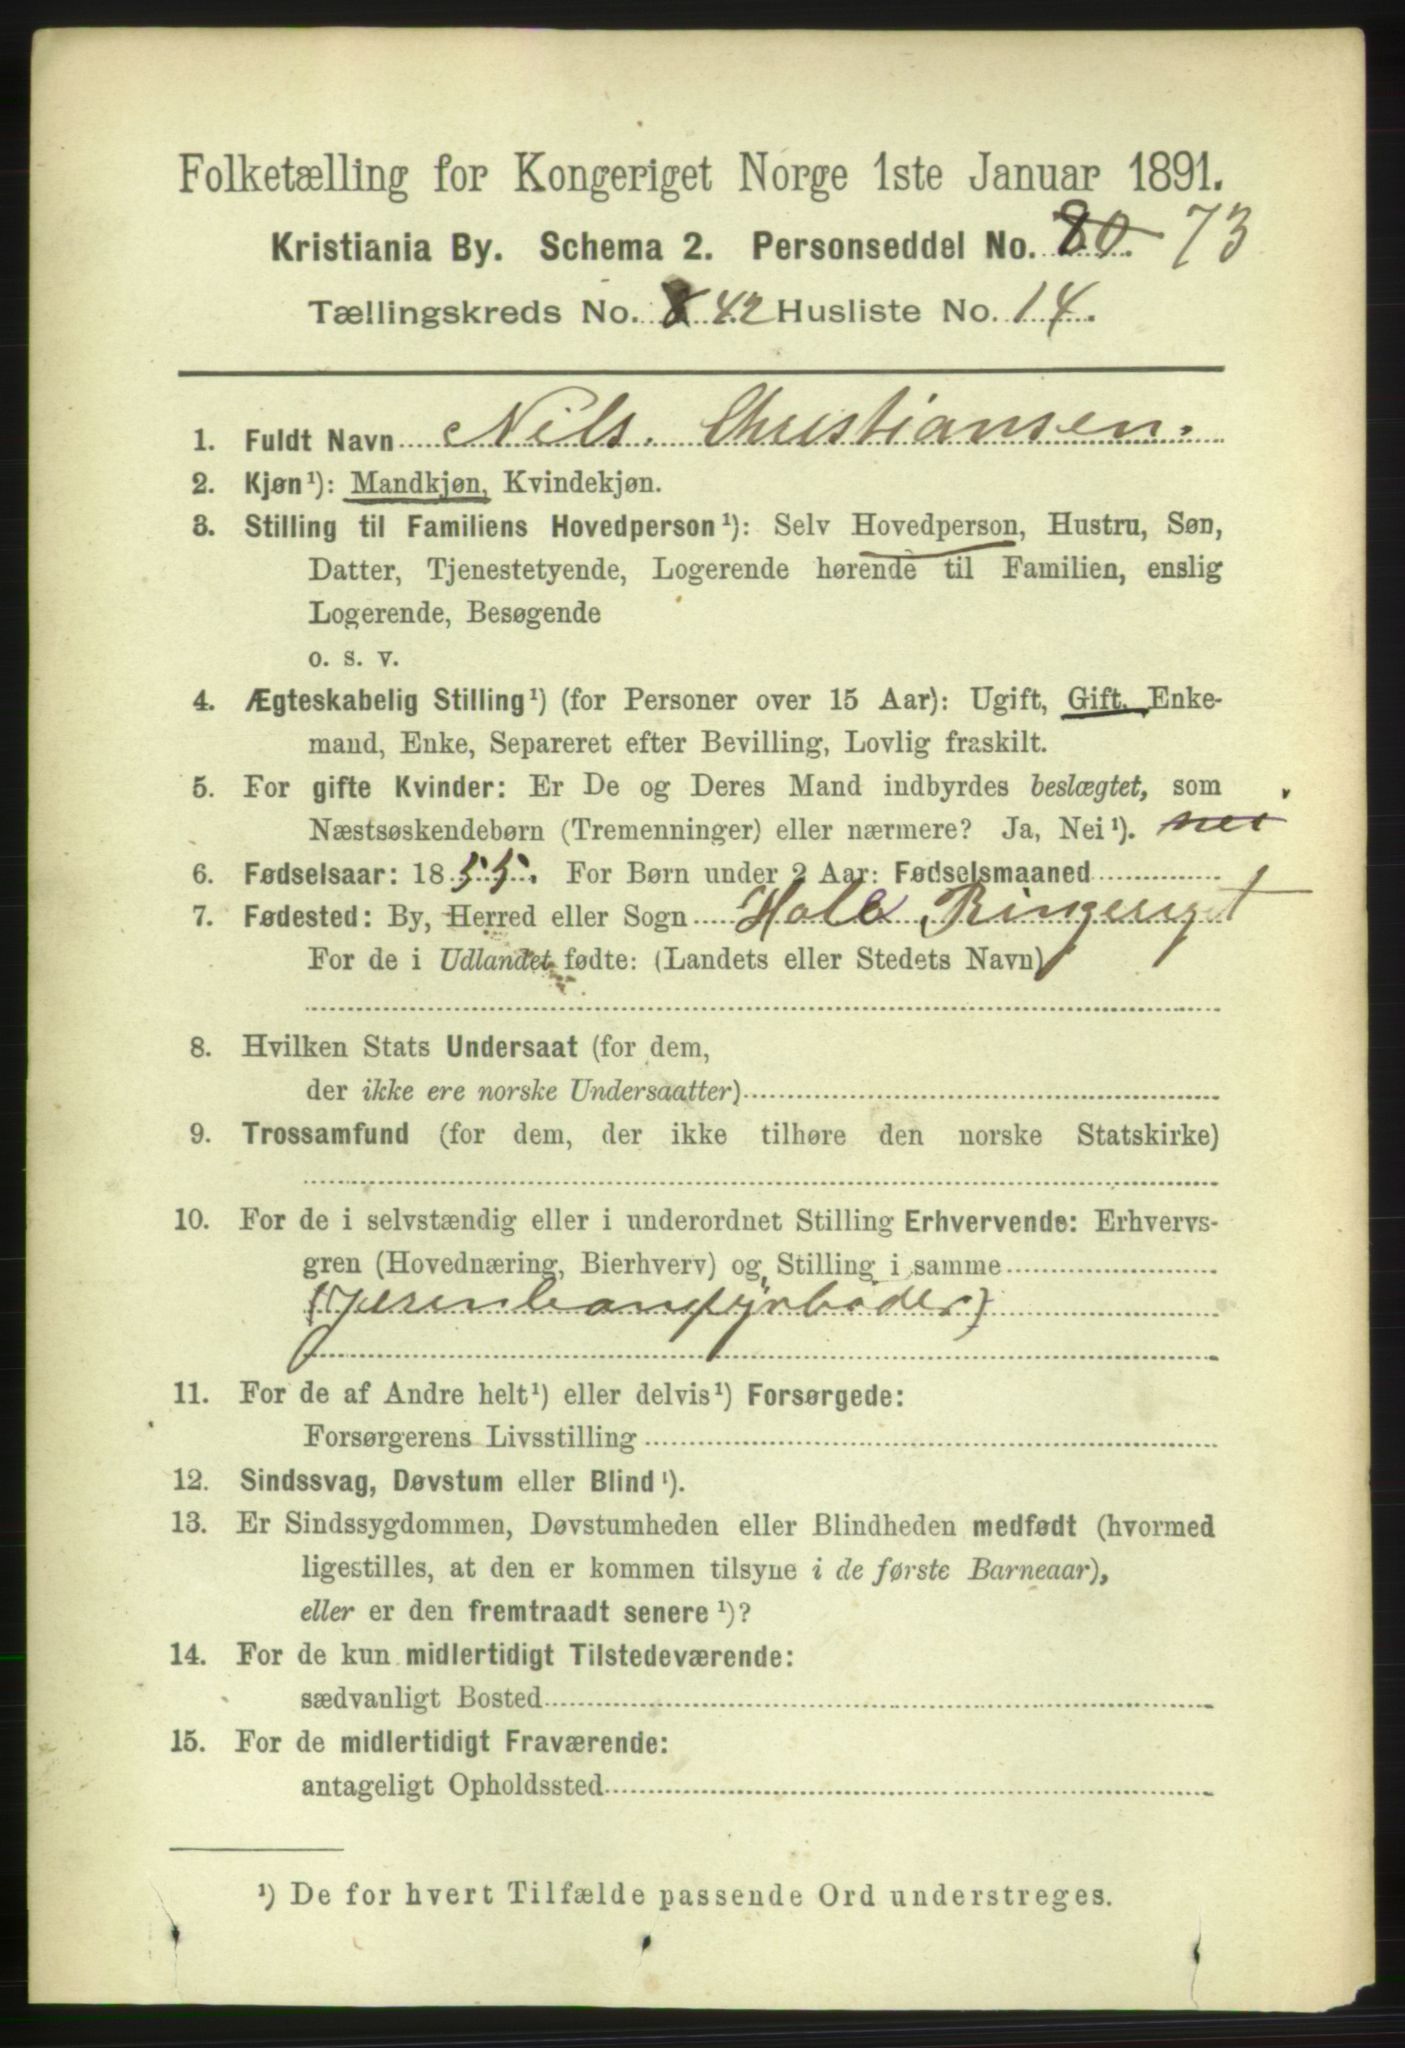 Folketælling for Kongeriget Norge 1ste Januar 1891.
Kristiania By. Schema 2. Personseddel No. 80. 73
Tællingskreds No. 8 42 Husliste No. 14.
1. Fuldt Navn Nils. Christiansen.
2. Kjøn¹): Mandkjøn, Kvindekjøn.
3. Stilling til Familiens Hovedperson¹): Selv Hovedperson, Hustru, Søn,
Datter, Tjenestetyende, Logerende hørende til Familien, enslig
Logerende, Besøgende
o. s. v.
4. Ægteskabelig Stilling¹) (for Personer over 15 Aar): Ugift, Gift, Enke-
mand, Enke, Separeret efter Bevilling, Lovlig fraskilt.
5. For gifte Kvinder: Er De og Deres Mand indbyrdes beslægtet, som
Næstsøskendebørn (Tremenninger) eller nærmere? Ja, Nei¹). nei
6. Fødselsaar: 1855. For Børn under 2 Aar: Fødselsmaaned
7. Fødested: By, Herred eller Sogn Hole Ringeriget
For de i Udlandet fødte: (Landets eller Stedets Navn)
8. Hvilken Stats Undersaat (for dem,
der ikke ere norske Undersaatter)
9. Trossamfund (for dem, der ikke tilhøre den norske Statskirke)
10. For de i selvstændig eller i underordnet Stilling Erhvervende: Erhvervs-
gren (Hovednæring, Bierhverv) og Stilling i samme
11. For de af Andre helt¹) eller delvis¹) Forsørgede:
Forsørgerens Livsstilling
12. Sindssvag, Døvstum eller Blind¹).
13. Er Sindssygdommen, Døvstumheden eller Blindheden medfødt (hvormed
ligestilles, at den er kommen tilsyne i de første Barneaar),
eller er den fremtraadt senere¹)?
14. For de kun midlertidigt Tilstedeværende:
sædvanligt Bosted
15. For de midlertidigt Fraværende:
antageligt Opholdssted
¹) De for hvert Tilfælde passende Ord understreges.